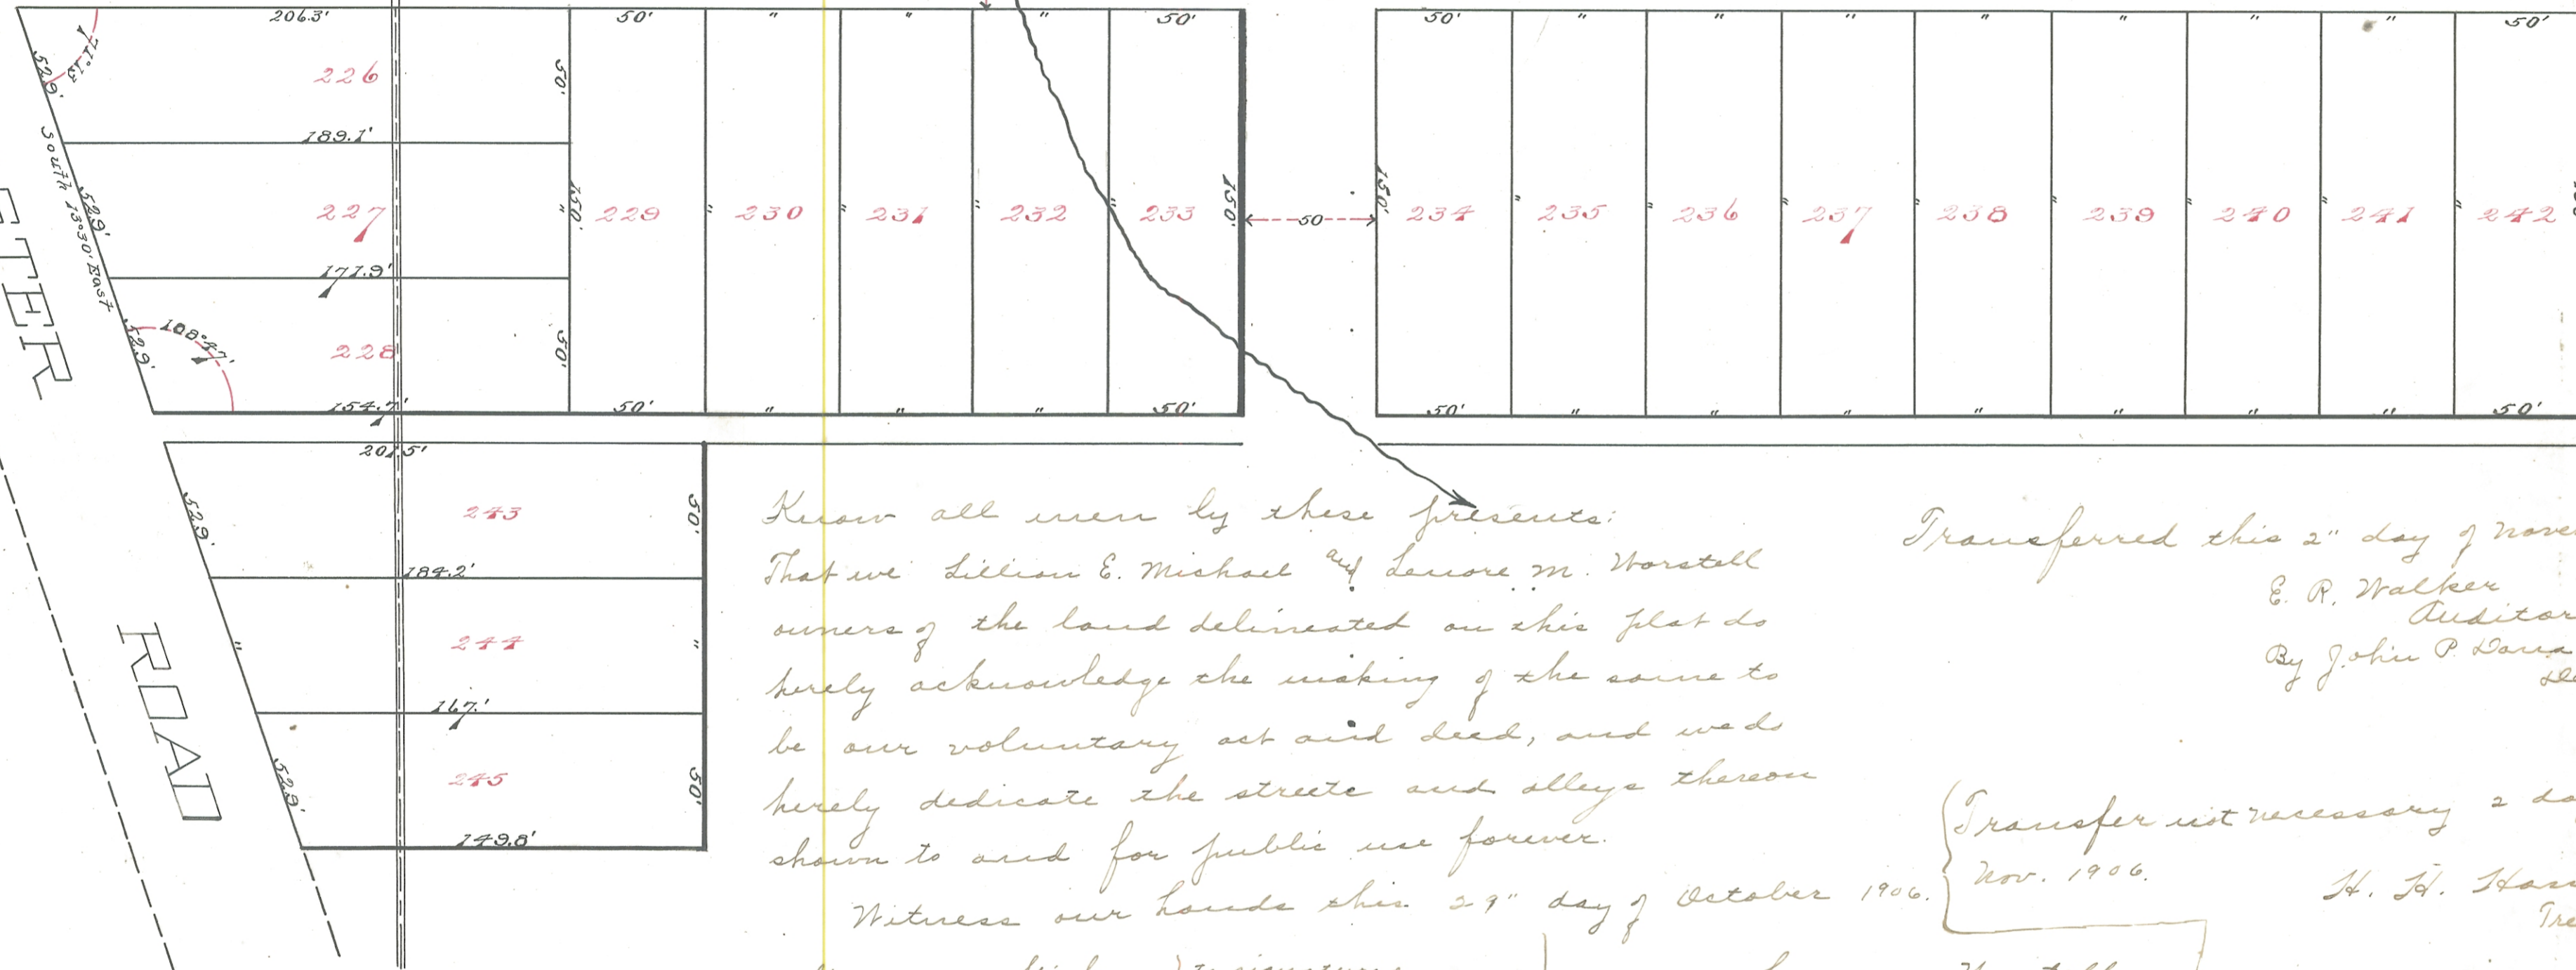 206.3' 50' " " " 50' 50' " " " " " " " 50'
71°13'
52.9' 226 50'
189.1'
South 13°30' East
52.9' 227 " 150' 229 " 230 " 231 " 232 " 233 150' 50 150' 234 " 235 " 236 " 237 " 238 " 239 " 240 " 241 " 242
171.9'
108°47'
52.9' 228 50'
154.7' 50' " " " 50' 50' " " " " " " " 50'
TER
ROAD
201.5'
52.9' 243 50'
184.2'
" 244 "
167.'
52.9' 245 50'
149.8'
Know all men by these presents:
That we Lillian E. Michael and Lenore M. Worstell
owners of the land delineated on this plat do
hereby acknowledge the making of the same to
be our voluntary act and deed, and we do
hereby dedicate the streets and alleys thereon
shown to and for public use forever.
Witness our hands this 29" day of October 1906.
Transferred this 2" day of Nove
E. R. Walker
Auditor
By John P.
Transfer not necessary 2 da
Nov. 1906.
H. H.
Tre
to signature